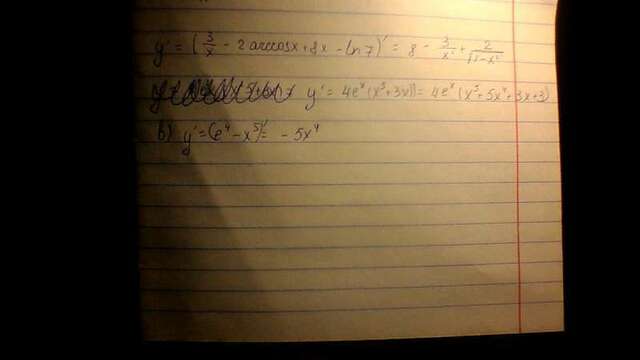 y' = (3/x - 2 arccosx + 8x - ln7)' = 8 - 3/x² + 2/√(1-x²)
y' = 4eˣ(x⁵+3x)) = 4eˣ(x⁵+5x⁴+3x+3)
b) y' = (e⁴ - x⁵)' = - 5x⁴